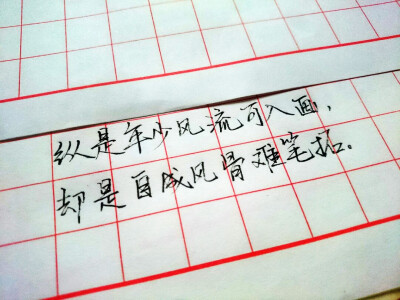 纵是年少风流可入画，
却是自成风骨难笔拓。